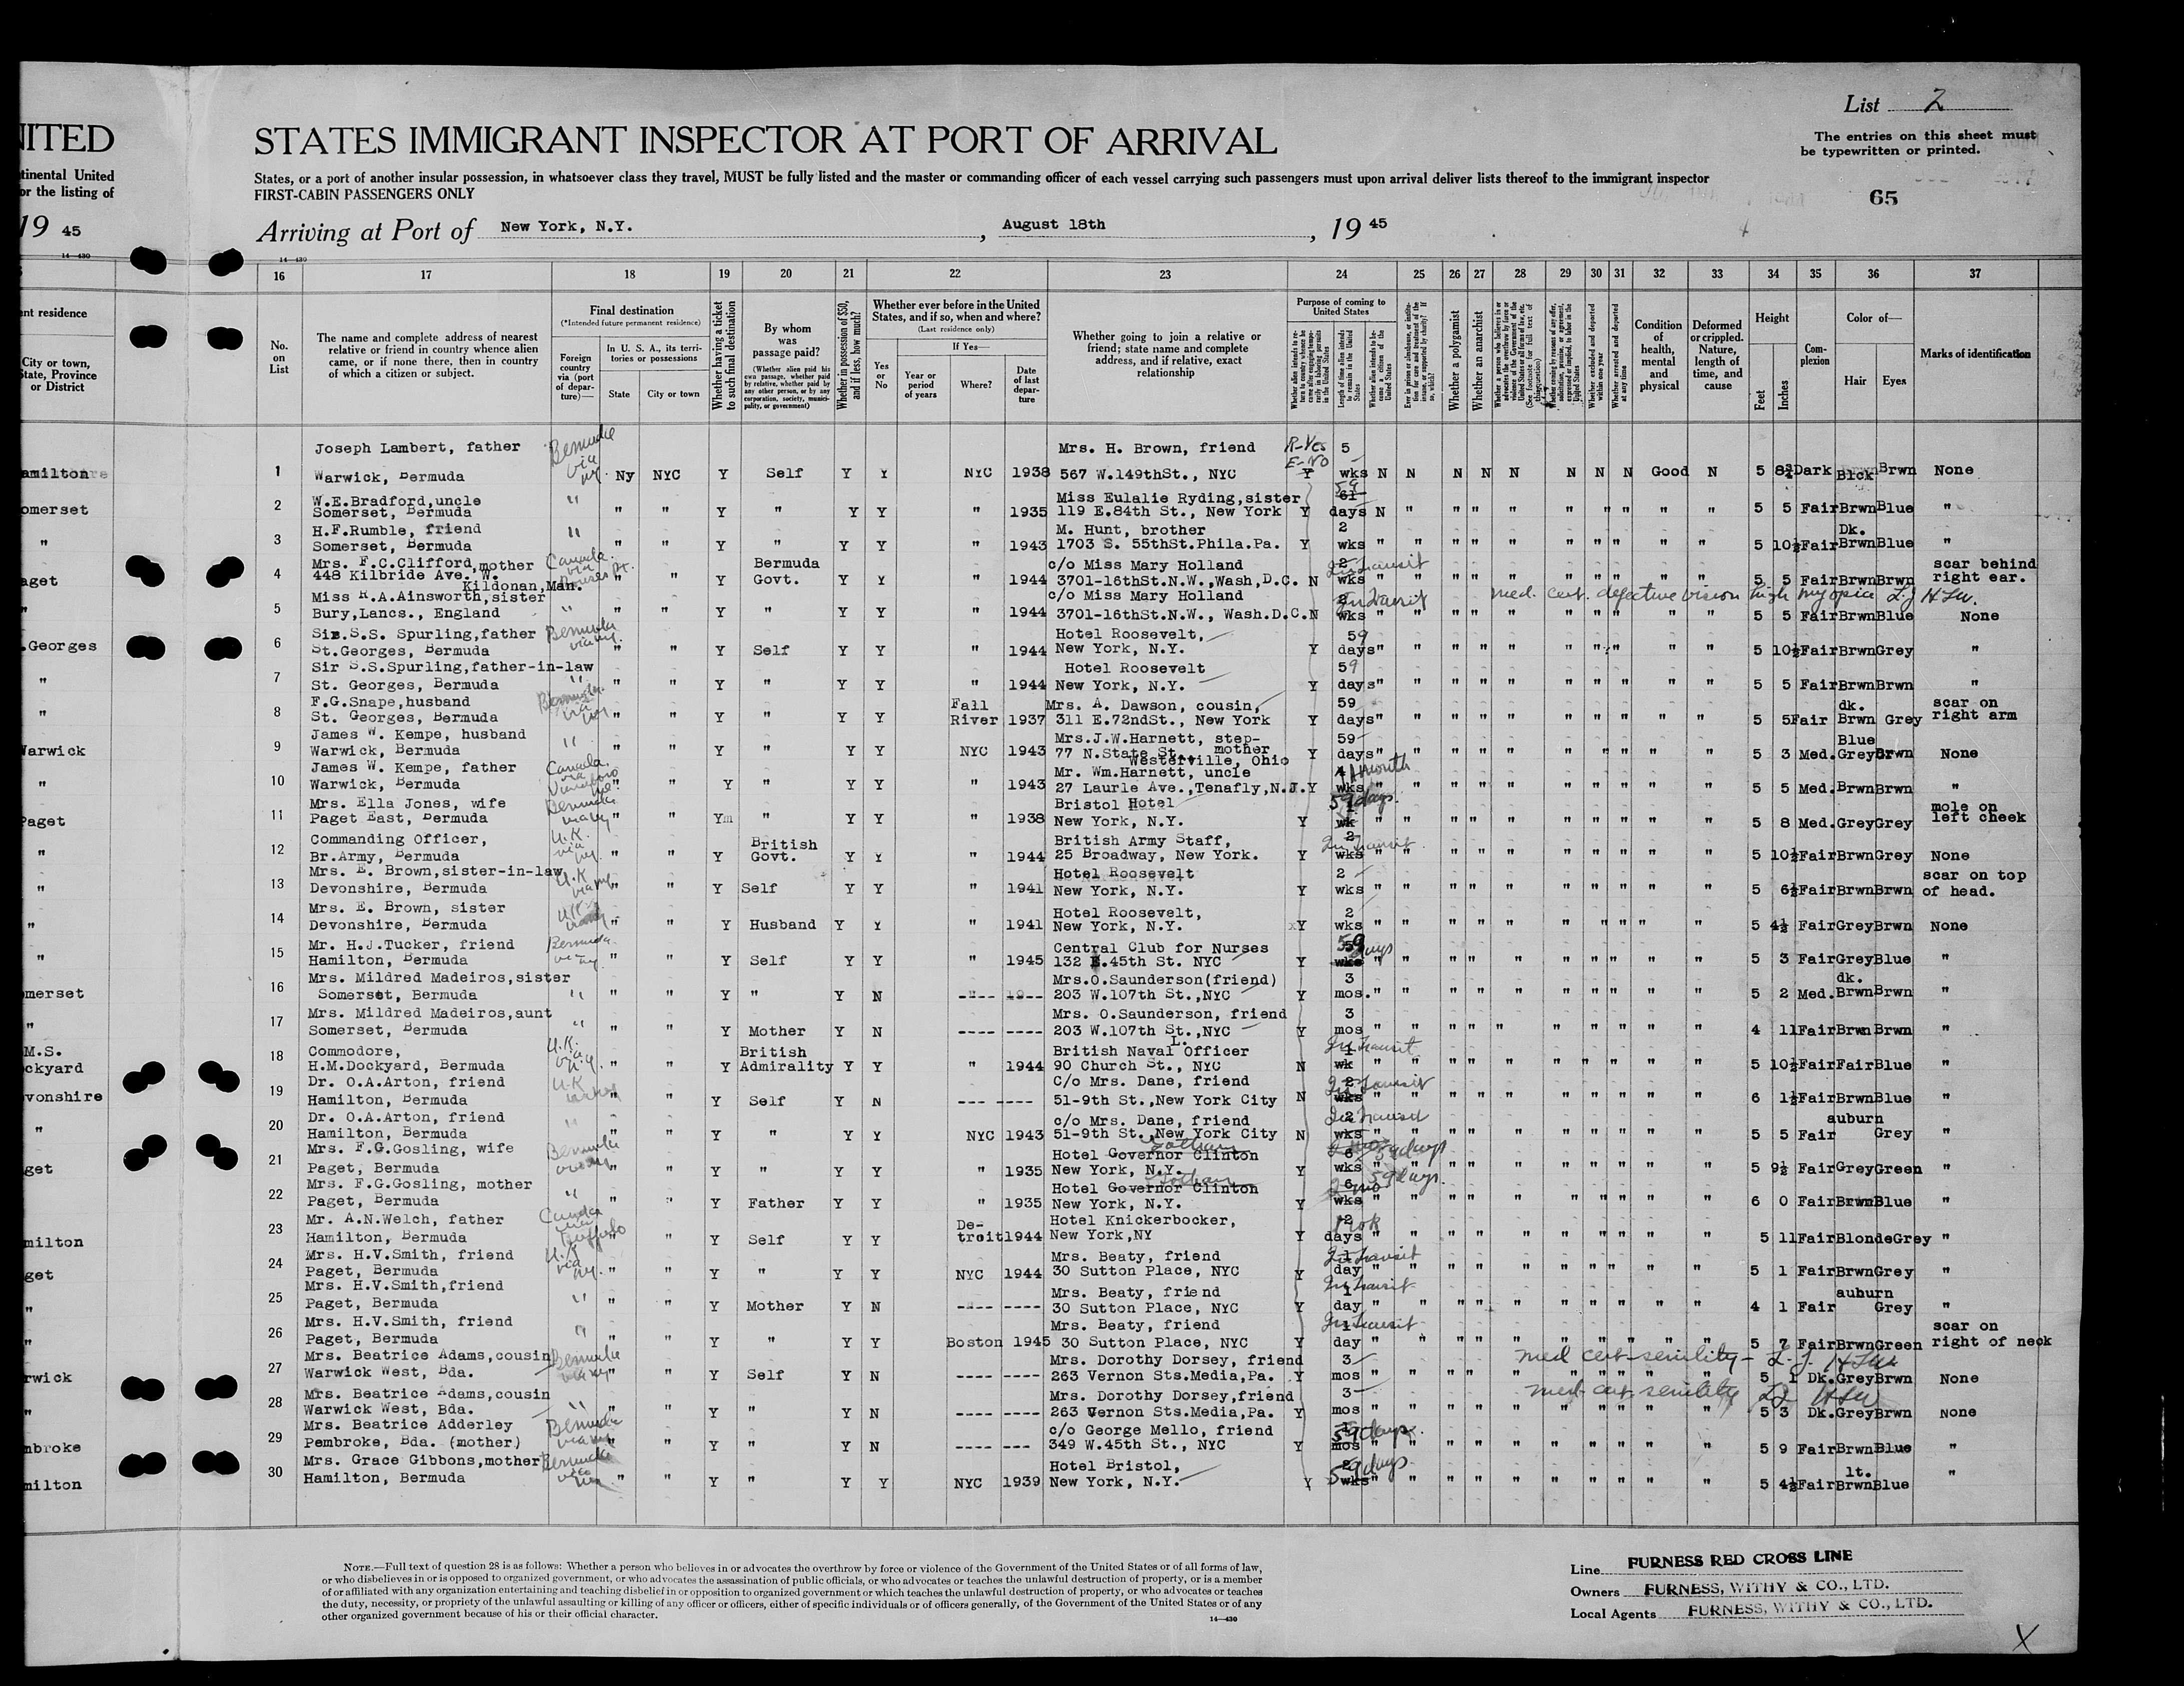 List 2
The entries on this sheet must
be typewritten or printed.
65
NITED
STATES IMMIGRANT INSPECTOR AT PORT OF ARRIVAL
tinental United
or the listing of
States, or a port of another insular possession, in whatsoever class they travel, MUST be fully listed and the master or commanding officer of each vessel carrying such passengers must upon arrival deliver lists thereof to the immigrant inspector
FIRST-CABIN PASSENGERS ONLY
19 45
Arriving at Port of New York, N.Y. , August 18th , 19 45
14—430 14—430
16 17 18 19 20 21 22 23 24 25 26 27 28 29 30 31 32 33 34 35 36 37
ent residence
City or town,
State, Province
or District
No. on List
The name and complete address of nearest relative or friend in country whence alien came, or if none there, then in country of which a citizen or subject.
Final destination
(*Intended future permanent residence)
Foreign country via (port of departure)—
In U. S. A., its territories or possessions
State City or town
Whether having a ticket to such final destination
By whom was passage paid?
(Whether alien paid his own passage, whether paid by relative, whether paid by any other person, or by any corporation, society, municipality, or government)
Whether in possession of $50, and if less, how much?
Whether ever before in the United States, and if so, when and where?
(Last residence only)
Yes or No
If Yes—
Year or period of years
Where?
Date of last departure
Whether going to join a relative or friend; state name and complete address, and if relative, exact relationship
Purpose of coming to United States
Length of time alien intends to remain in the United States
Whether alien intends to become a citizen of the United States
Whether a polygamist
Whether an anarchist
Condition of health, mental and physical
Deformed or crippled. Nature, length of time, and cause
Height
Feet Inches
Complexion
Color of—
Hair Eyes
Marks of identification
Joseph Lambert, father Bermuda via NY Mrs. H. Brown, friend R-Yes E-No 5
amilton 1 Warwick, Bermuda Ny NYC Y Self Y Y NYC 1938 567 W.149thSt., NYC Y wks N N N N N N N N Good N 5 8½ Dark Blck Brwn None
W.E.Bradford,uncle " Miss Eulalie Ryding,sister 59 61
omerset 2 Somerset, Bermuda " " Y " Y Y " 1935 119 E.84th St., New York Y days N " " " " " " " " " 5 5 Fair Brwn Blue "
H.F.Rumble, friend " M. Hunt, brother 2 Dk.
" 3 Somerset, Bermuda " " Y " Y Y " 1943 1703 S. 55thSt.Phila.Pa. Y wks " " " " " " " " " " 5 10½ Fair Brwn Blue "
Mrs. F.C.Clifford,mother Canada via Bermuda c/o Miss Mary Holland 2 In transit scar behind
aget 4 448 Kilbride Ave. W. Kildonan,Man. " " Y Govt. Y Y " 1944 3701-16thSt.N.W.,Wash,D.C. N wks " " " " " " " " " " 5 5 Fair Brwn Brwn right ear.
Miss R.A.Ainsworth,sister c/o Miss Mary Holland 2 In transit med. cert. defective vision high myopia L.J. HSW.
" 5 Bury,Lancs., England " " " Y " Y Y " 1944 3701-16thSt.N.W., Wash.D.C. N wks " " " " " " " " " " 5 5 Fair Brwn Blue None
Sir.S.S. Spurling,father Bermuda via NY. Hotel Roosevelt, 59
.Georges 6 St.Georges, Bermuda " " Y Self Y Y " 1944 New York, N.Y. Y days " " " " " " " " " " 5 10½ Fair Brwn Grey "
Sir S.S.Spurling,father-in-law Hotel Roosevelt 59
" 7 St. Georges, Bermuda " " " Y " Y Y " 1944 New York, N.Y. Y days " " " " " " " " " " 5 5 Fair Brwn Brwn "
F.G.Snape,husband Bermuda via NY Fall Mrs. A. Dawson, cousin, 59 dk. scar on
" 8 St. Georges, Bermuda " " Y " Y Y River 1937 311 E.72ndSt., New York Y days " " " " " " " " " " 5 5 Fair Brwn Grey right arm
James W. Kempe, husband Mrs.J.W.Harnett, step-mother 59 Blue
Warwick 9 Warwick, Bermuda " " " Y " Y Y NYC 1943 77 N.State St., Westerville, Ohio Y days " " " " " " " " " " 5 3 Med. Grey Brwn None
James W. Kempe, father Canada via Mr. Wm.Harnett, uncle 4 1 month
" 10 Warwick, Bermuda " " Y " Y Y " 1943 27 Laurle Ave.,Tenafly,N.J. Y wks " " " " " " " " " " 5 5 Med. Brwn Brwn "
Mrs. Ella Jones, wife Bermuda via NY Bristol Hotel 59 days 1 mole on
Paget 11 Paget East, Bermuda " " Y " Y Y " 1938 New York, N.Y. Y wk " " " " " " " " " " 5 8 Med. Grey Grey left cheek
Commanding Officer, U.K. via NY. British British Army Staff, 2 In transit
" 12 Br.Army, Bermuda " " Y Govt. Y Y " 1944 25 Broadway, New York. Y wks " " " " " " " " " " 5 10½ Fair Brwn Grey None
Mrs. E. Brown,sister-in-law U.K via NY Hotel Roosevelt 2 scar on top
" 13 Devonshire, Bermuda " " Y Self Y Y " 1941 New York, N.Y. Y wks " " " " " " " " " " 5 6½ Fair Brwn Brwn of head.
Mrs. E. Brown, sister U.K. Hotel Roosevelt, 2
" 14 Devonshire, Bermuda " " Y Husband Y Y " 1941 New York, N.Y. Y wks " " " " " " " " " " 5 4½ Fair Grey Brwn None
Mr. H.J.Tucker, friend Bermuda via NY Central Club for Nurses 59 days
" 15 Hamilton, Bermuda " " Y Self Y Y " 1945 132 E.45th St. NYC Y wks " " " " " " " " " " 5 3 Fair Grey Blue "
Mrs. Mildred Madeiros,sister Mrs.O.Saunderson(friend) 3 dk.
merset 16 Somerset, Bermuda " " " Y " Y N ---- ---- 203 W.107th St.,NYC Y mos. " " " " " " " " " " 5 2 Med. Brwn Brwn "
Mrs. Mildred Madeiros,aunt Mrs. O.Saunderson, friend 3
" 17 Somerset, Bermuda " " " Y Mother Y N ---- ---- 203 W.107th St.,NYC Y mos " " " " " " " " " " 4 11 Fair Brwn Brwn "
M.S. Commodore, U.K. via NY. British British Naval L. Officer 1 In transit
ckyard 18 H.M.Dockyard, Bermuda " " Y Admirality Y Y " 1944 90 Church St., NYC N wk " " " " " " " " " " 5 10½ Fair Fair Blue "
Dr. O.A.Arton, friend U.K C/o Mrs. Dane, friend 2 In transit
vonshire 19 Hamilton, Bermuda " " Y Self Y N --- ---- 51-9th St.,New York City N wks " " " " " " " " " " 6 1½ Fair Brwn Blue "
Dr. O.A.Arton, friend c/o Mrs. Dane, friend 2 In transit auburn
" 20 Hamilton, Bermuda " " " Y " Y Y NYC 1943 51-9th St.,New York City N wks " " " " " " " " " " 5 5 Fair Grey "
Mrs. F.G.Gosling, wife Bermuda Hotel Governor Clinton Gotham 6 59 days
get 21 Paget, Bermuda " " Y " Y Y " 1935 New York, N.Y. Y wks " " " " " " " " " " 5 9½ Fair Grey Green "
Mrs. F.G.Gosling, mother Hotel Governor Clinton Gotham 6 2 mo 59 days.
22 Paget, Bermuda " " " Y Father Y Y " 1935 New York, N.Y. Y wks " " " " " " " " " " 6 0 Fair Brwn Blue "
Mr. A.N.Welch, father Canada via Buffalo De- Hotel Knickerbocker, 2
milton 23 Hamilton, Bermuda " " Y Self Y Y troit 1944 New York,NY Y days " " " " " " " " " " 5 11 Fair Blonde Grey "
Mrs. H.V.Smith, friend U.K. via NY. Mrs. Beaty, friend 1 In transit
get 24 Paget, Bermuda " " Y " Y Y NYC 1944 30 Sutton Place, NYC Y day " " " " " " " " " " 5 1 Fair Brwn Grey "
Mrs. H.V.Smith,friend Mrs. Beaty, friend 1 In transit auburn
" 25 Paget, Bermuda " " " Y Mother Y N ---- ---- 30 Sutton Place, NYC Y day " " " " " " " " " " 4 1 Fair Grey "
Mrs. H.V.Smith, friend Mrs. Beaty, friend 1 In transit scar on
" 26 Paget, Bermuda " " " Y " Y Y Boston 1945 30 Sutton Place, NYC Y day " " " " " " " " " " 5 7 Fair Brwn Green right of neck
Mrs. Beatrice Adams,cousin Bermuda via NY Mrs. Dorothy Dorsey, friend 3 med cert senility - L.J. HSW
rwick 27 Warwick West, Bda. " " Y Self Y N ---- ---- 263 Vernon Sts.Media,Pa. Y mos " " " " " " " " " " 5 1 Dk. Grey Brwn None
Mrs. Beatrice Adams,cousin Mrs. Dorothy Dorsey,friend 3 med cert senility L.J. HSW
" 28 Warwick West, Bda. " " " Y " Y N ---- ---- 263 Vernon Sts.Media,Pa. Y mos " " " " " " " " " " 5 3 Dk. Grey Brwn None
Mrs. Beatrice Adderley Bermuda via NY c/o George Mello, friend 59 days
mbroke 29 Pembroke, Bda. (mother) " " Y " Y N ---- --- 349 W.45th St., NYC Y mos " " " " " " " " " " 5 9 Fair Brwn Blue "
Mrs. Grace Gibbons,mother Bermuda via Hotel Bristol, 2 59 days lt.
milton 30 Hamilton, Bermuda " " Y " Y Y NYC 1939 New York, N.Y. Y wks " " " " " " " " " " 5 4½ Fair Brwn Blue "
NOTE.—Full text of question 28 is as follows: Whether a person who believes in or advocates the overthrow by force or violence of the Government of the United States or of all forms of law,
or who disbelieves in or is opposed to organized government, or who advocates the assassination of public officials, or who advocates or teaches the unlawful destruction of property, or is a member
of or affiliated with any organization entertaining and teaching disbelief in or opposition to organized government or which teaches the unlawful destruction of property, or who advocates or teaches
the duty, necessity, or propriety of the unlawful assaulting or killing of any officer or officers, either of specific individuals or of officers generally, of the Government of the United States or of any
other organized government because of his or their official character.
14—430
Line FURNESS RED CROSS LINE
Owners FURNESS, WITHY & CO., LTD.
Local Agents FURNESS, WITHY & CO., LTD.
X